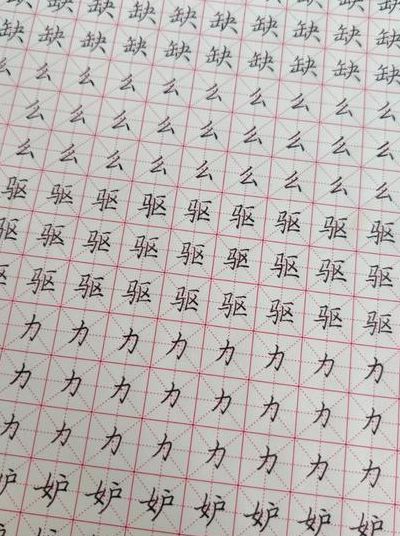 缺缺缺缺
缺缺缺缺缺缺缺缺缺
缺缺缺缺缺缺缺缺缺缺
么么么么么么么么么么
么么么么么么么么么
么么么么么么么么么
驱驱驱驱驱驱驱驱驱
驱驱驱驱驱驱驱驱驱
驱驱驱驱驱驱驱驱
力力力力力力力力
力力力力力力力力
力力力力力力力力
妒妒妒妒妒妒妒